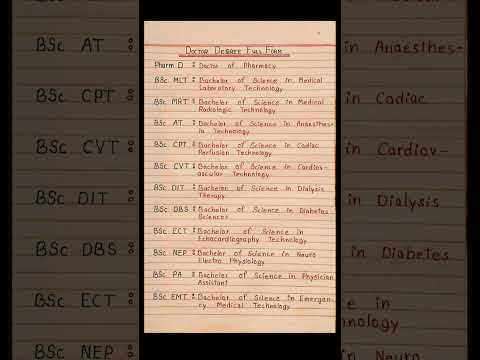 DOCTOR DEGREE FULL FORM
Pharm D : Doctor of Pharmacy
BSc MLT : Bachelor of Science in Medical
Laboratory Technology
BSc MRT : Bachelor of Science in Medical
Radiologic Technology
BSc AT : Bachelor of Science in Anaesthes-
ia Technology
BSc CPT : Bachelor of Science in Cadiac
Perfusion Technology
BSc CVT : Bachelor of Science in Cardiov-
ascular Technology
BSc DIT : Bachelor of Science in Dialysis
Therapy
BSc DBS : Bachelor of Science in Diabetes
Sciences
BSc ECT : Bachelor of Science in
Echocardiography Technology
BSc NEP : Bachelor of Science in Neuro
Electro Physiology
BSc PA : Bachelor of Science in Physician
Assistant
BSc EMT : Bachelor of Science in Emergen-
cy Medical Technology
BSc AT :
BSc CPT :
BSc CVT :
BSc DIT :
BSc DBS :
BSc ECT :
BSc NEP :
in Anaesthes-
in Cadiac
in Cardiov-
in Dialysis
in Diabetes
in
hnology
in Neuro